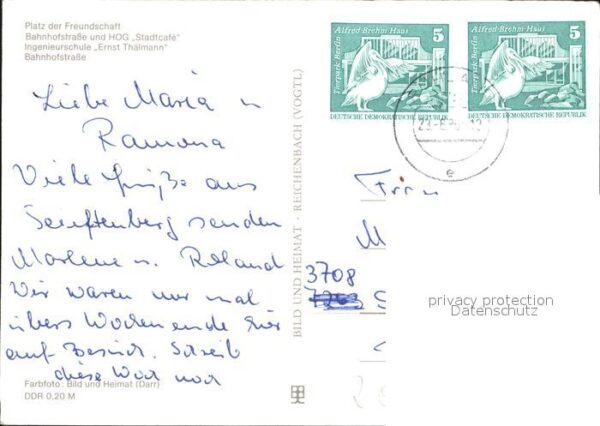 Platz der Freundschaft
Bahnhofstraße und HOG „Stadtcafé"
Ingenieurschule „Ernst Thälmann"
Bahnhofstraße
Liebe Maria u
Ramona
Viele Grüße aus
Senftenberg senden
Marlene u. Roland
Wir waren nur mal
übers Wochenende hier
auf Besuch. Schreib
diese Wo noch
Farbfoto: Bild und Heimat (Darr)
DDR 0,20 M
BILD UND HEIMAT · REICHENBACH (VOGTL)
Alfred-Brehm-Haus 5
Tierpark Berlin
DEUTSCHE DEMOKRATISCHE REPUBLIK
Alfred-Brehm-Haus 5
Tierpark Berlin
DEUTSCHE DEMOKRATISCHE REPUBLIK
e
M
3708
privacy protection
Datenschutz